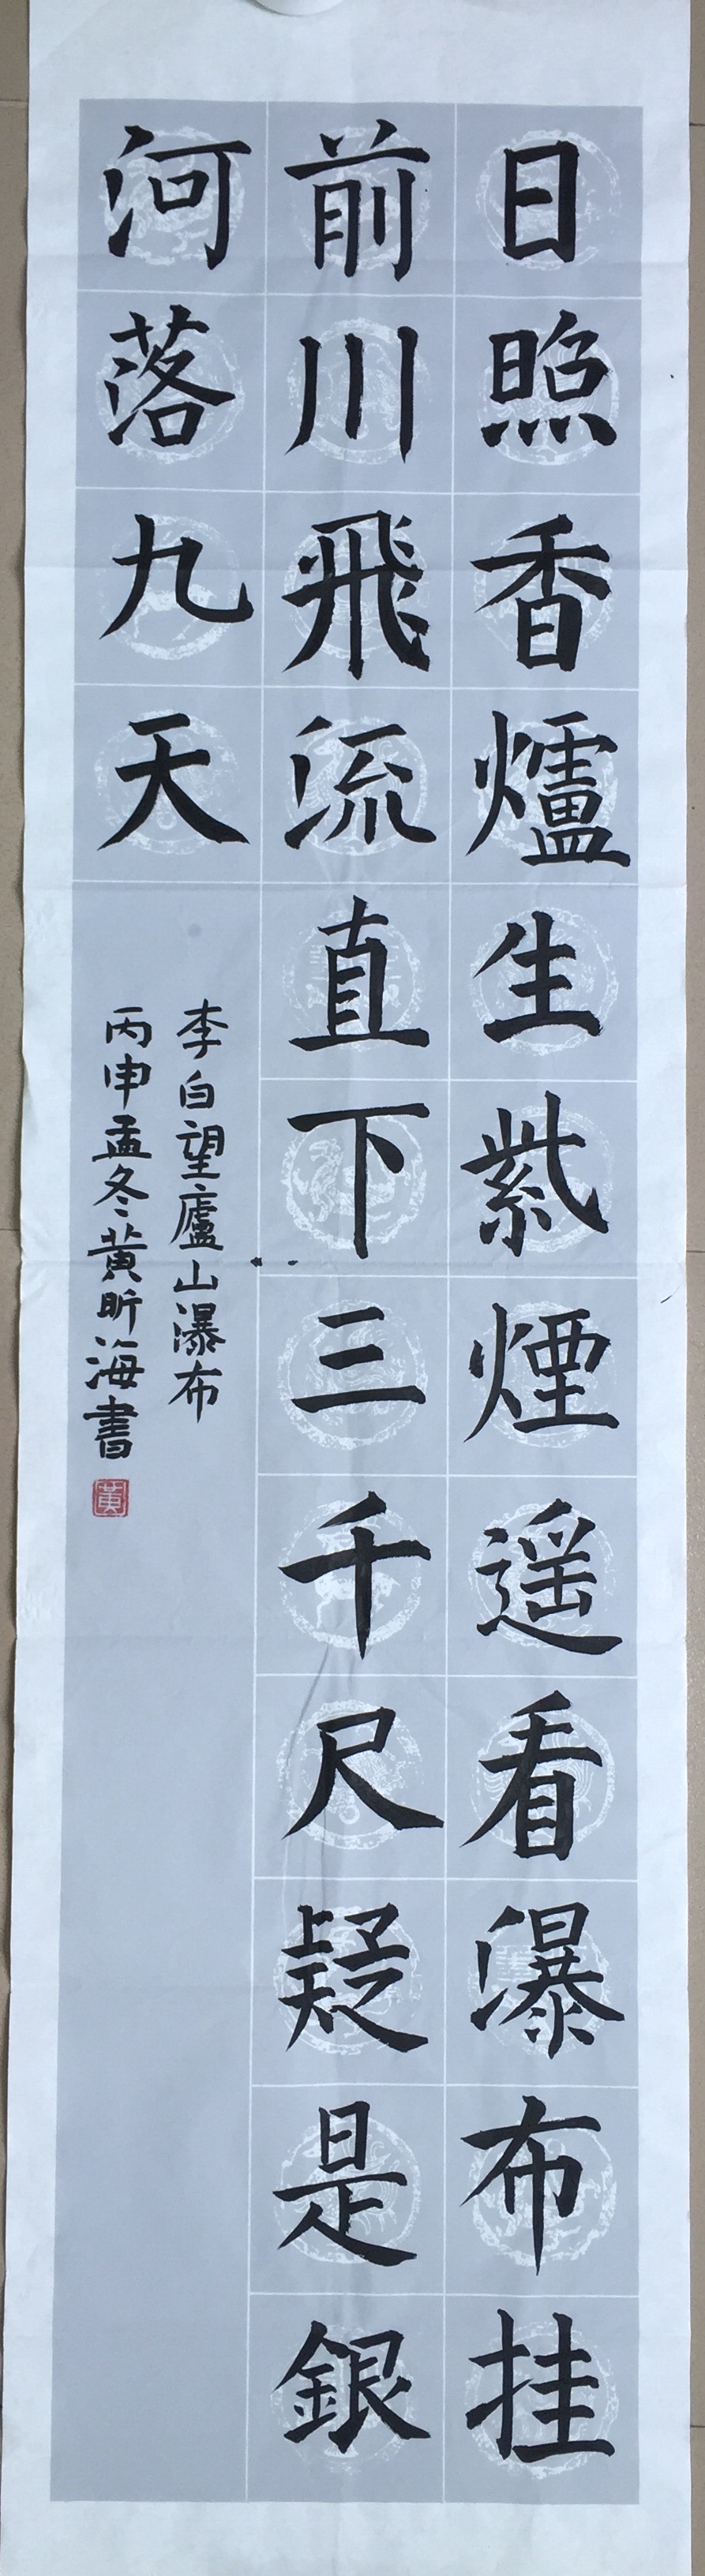 日照香爐生紫煙遥看瀑布挂
前川飛流直下三千尺疑是銀
河落九天
李白望廬山瀑布
丙申孟冬黄昕海書
黄